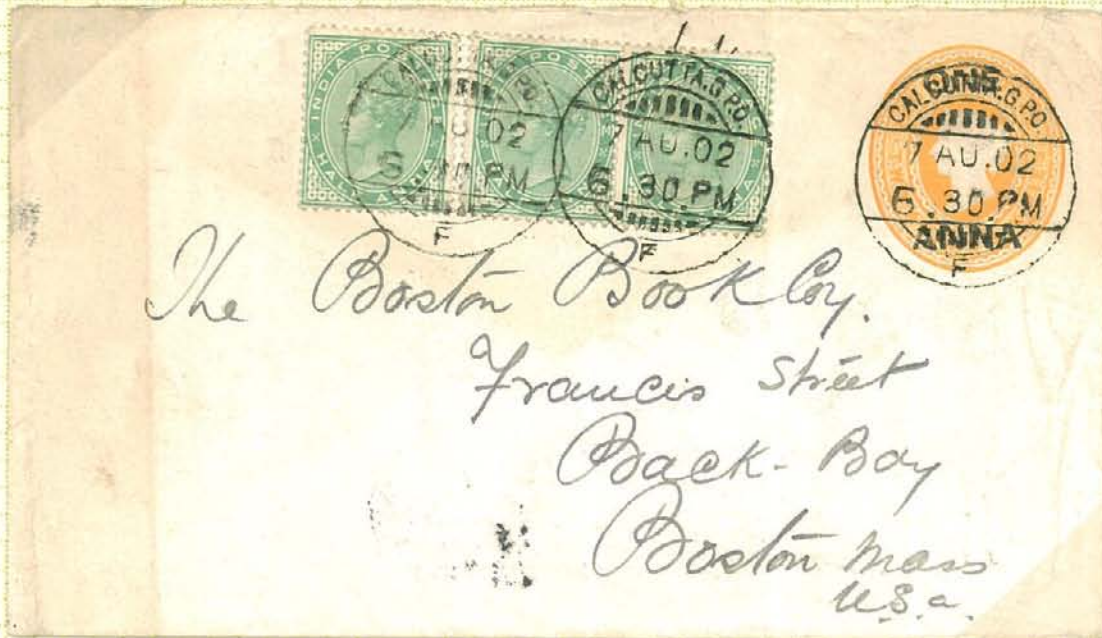 INDIA POSTAGE
HALF ANNA
CALCUTTA.G.P.O.
7 AU.02
6.30.PM
F
CALCUTTA.G.P.O.
7 AU.02
6.30.PM
F
ONE
ANNA
CALCUTTA.G.P.O.
7 AU.02
6.30.PM
F
The Boston Book Coy.
Francis Street
Back-Bay
Boston Mass
U.S.a.